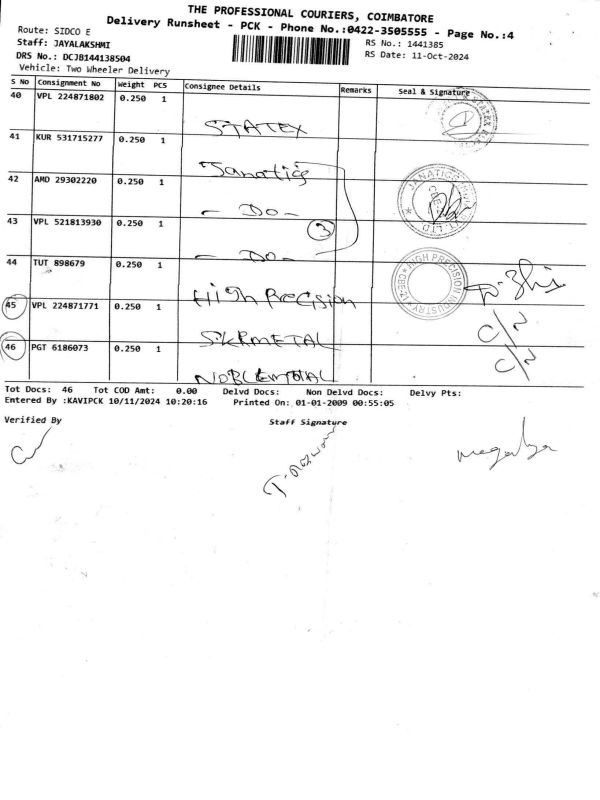 THE PROFESSIONAL COURIERS, COIMBATORE
Delivery Runsheet - PCK - Phone No.:0422-3505555 - Page No.:4
Route: SIDCO E
Staff: JAYALAKSHMI
DRS No.: DCJB144138504
Vehicle: Two Wheeler Delivery
RS No.: 1441385
RS Date: 11-Oct-2024
S No Consignment No Weight PCS Consignee Details Remarks Seal & Signature
40 VPL 224871802 0.250 1 STATEX
41 KUR 531715277 0.250 1 Janatics
42 AMD 29302220 0.250 1 - DO -
43 VPL 521813930 0.250 1 - DO - 3
44 TUT 898679 0.250 1 HIGH PRECISION
45 VPL 224871771 0.250 1 S.K.R METAL C/N
46 PGT 6186073 0.250 1 NOBLE METAL C/N
JANATICS
HIGH PRECISION INDUSTRY
Tot Docs: 46 Tot COD Amt: 0.00 Delvd Docs: Non Delvd Docs: Delvy Pts:
Entered By :KAVIPCK 10/11/2024 10:20:16 Printed On: 01-01-2009 00:55:05
Verified By
Staff Signature